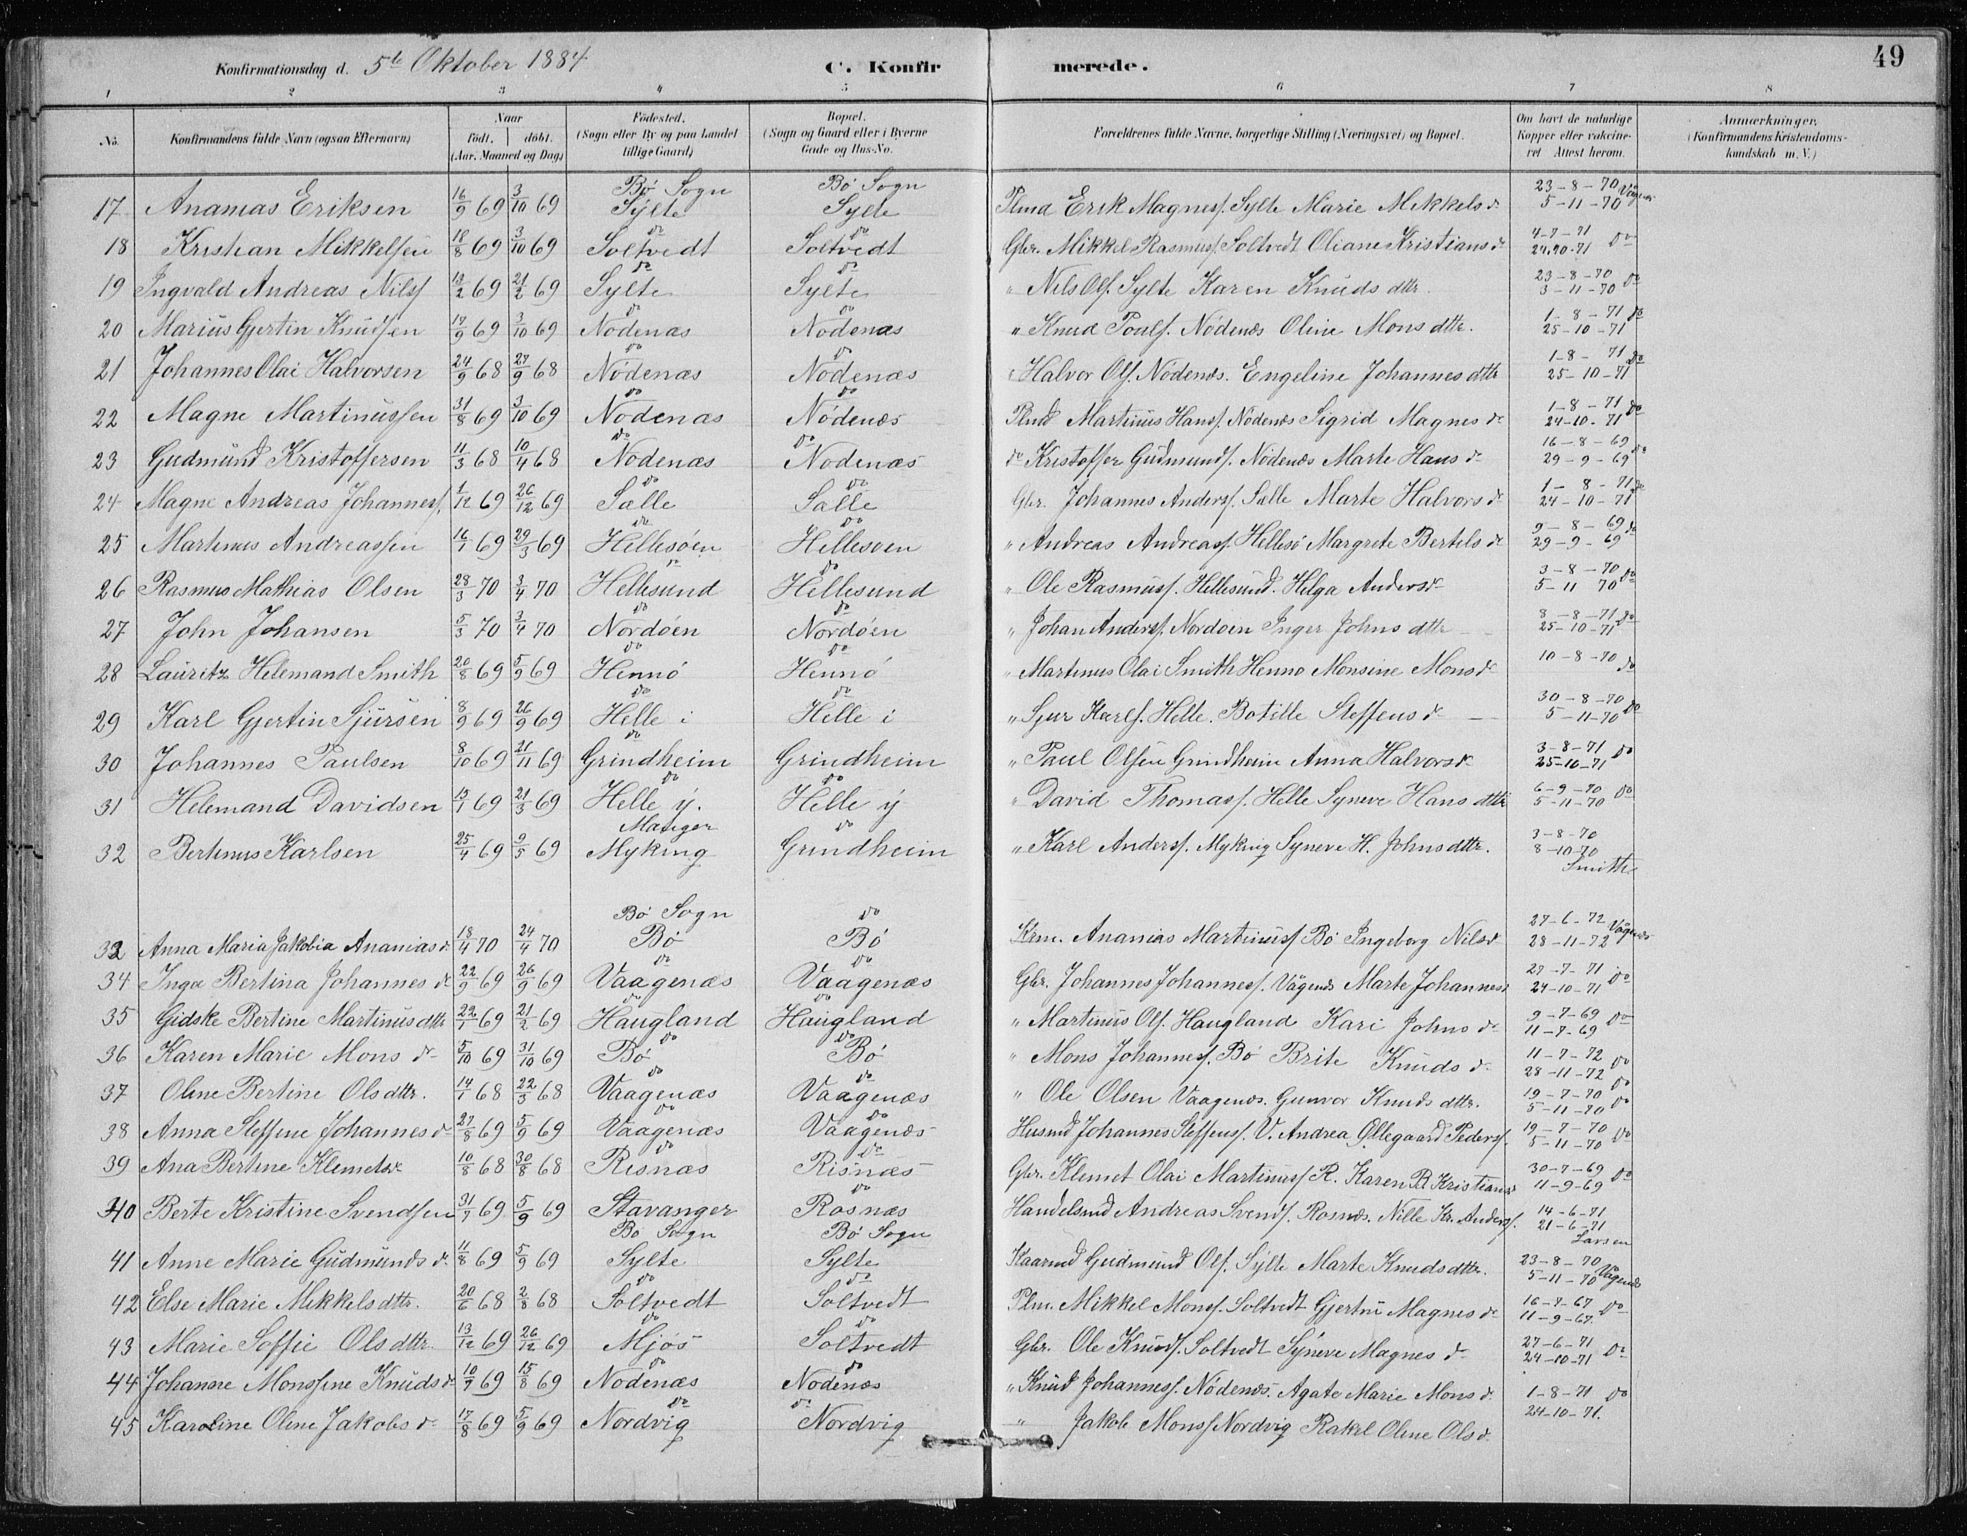 49
Konfirmationsdag d. 5te Oktober 1884 C. Konfir merede.
1 2 3 4 5 6 7 8
No. Konfirmandens fulde Navn (ogsaa Efternavn) Naar født. døbt. (Aar, Maaned og Dag) Fødested. (Sogn eller By og paa Landet tillige Gaard) Bopæl. (Sogn og Gaard eller i Byerne Gade og Hus-No. Forældrenes fulde Navne, borgerlige Stilling (Næringsvei) og Bopæl. Om havt de naturlige Kopper eller vakcineret Attest herom. Anmærkninger. (Konfirmandens Kristendomskundskab m. V.)
17 Ananias Eriksen 16/9 69 3/10 69 Bö Sogn Sylte Bö Sogn Sylte Plmd Erik Magness. Sylte Marie Mikkelsd. 23-8-70 5-11-70 Vågenes
18 Kristian Mikkelsen 18/8 69 3/10 69 do Soltvedt do Soltvedt Gbr. Mikkel Rasmuss. Soltvedt Oliane Kristiansd. 4-7-71 24-10-71 do
19 Ingvald Andreas Nilss 13/2 69 21/2 69 do Sylte do Sylte " Nils Ols. Sylte Karen Knudsdttr. 23-8-70 5-11-70 do
20 Marius Gjertin Knudsen 17/9 69 3/10 69 do Nödenæs do Nödenæs " Knud Pouls. Nödenæs Oline Monsdttr. 1-8-71 25-10-71 do
21 Johannes Olai Halvorsen 24/9 68 27/9 68 do Nödenæs do Nödenæs " Halvor Ols. Nödenæs. Engeline Johannesdttr 1-8-71 25-10-71 do
22 Magne Martinussen 31/8 69 3/10 69 do Nödenæs do Nödenæs Plmd Martinus Hans. Nödenæs Sigrid Magnesd. 1-8-71 24-10-71 do
23 Gudmund Kristoffersen 11/3 68 10/4 68 do Nödenæs do Nödenæs do Kristoffer Gudmunds. Nödenæs Marte Hansd. 16-8-69 29-9-69 do
24 Magne Andreas Johanness. 1/12 69 26/12 69 do Sælle do Sælle Gbr. Johannes Anderss. Sælle Marte Halvorsd. 1-8-71 24-10-71 do
25 Martinus Andreassen 16/1 69 29/3 69 do Hellesöen do Hellesöen " Andreas Andreass. Hellesö Margrete Bertelsd. 9-8-69 29-9-69 do
26 Rasmus Mathias Olsen 28/3 70 3/4 70 do Hellesund do Hellesund " Ole Rasmuss. Hellesund. Helga Andersd. 3-8-70 5-11 70 do
27 John Johansen 5/3 70 3/4 70 do Nordöen do Nordöen " Johan Anderss. Nordöen Inger Johnsdttr 8-8-71 25-10-71 do
28 Lauritz Helemand Smith 20/8 69 5/9 69 do Hennö do Hennö " Martinus Olai Smith Hennö Monsine Monsd. 10-8-70 do
29 Karl Gjertin Sjursen 8/9 69 26/9 69 do Helle i do Helle i " Sjur Karls. Helle. Botille Steffensd. 30-8-70 5-11-70 do
30 Johannes Paulsen 8/10 69 21/11 69 do Grindheim Grindheim " Paul Olsen Grindheim Anna Halvorsd. 3-8-71 25-10-71 do
31 Helemand Davidsen 13/1 69 21/3 69 do Helle y. do Helle y " David Thomass. Helle Syneve Hansdttr 6-9-70 5-11-70 do
32 Bertinus Karlsen 25/4 69 9/5 69 Manger Myking do Grindheim " Karl Anderss. Myking Syneve H. Johnsdttr. 3-8-70 8-10-70 Smith
33 Anna Maria Jakobia Ananiasd. 18/4 70 24/4 70 Bö Sogn Bö do Bö Krm. Ananias Martinuss Bö Ingeborg Nilsd. 27-6-72 28-11-72 Vågenes
34 Inga Bertina Johannesd. 22/9 69 26/9 69 do Vaagenæs do Vaagenæs Gbr. Johannes Johanness. Vågenæs Marte Johannesd. 27-7-71 24-10-71 do
35 Gidske Bertine Martinusdttr 22/1 69 21/2 69 do Haugland do Haugland " Martinus Ols. Haugland Kari Johnsd. 9-7-69 11-7-69 do
36 Karen Marie Monsd. 5/10 69 31/10 69 do Bö do Bö " Mons Johanness. Bö Brite Knudsd. 11-7-72 28-11-72 do
37 Oline Bertine Olsdttr. 14/1 68 22/3 68 do Vaagenæs do Vaagenæs " Ole Olsen Vaagenæs. Gunvor Knudsdttr. 19-7-70 5-11-70 do
38 Anna Steffine Johannesd. 27/8 69 5/9 69 do Vaagenæs do Vaagenæs Husmd Johannes Steffens. V. Andrea Øllegaard Peders. 19-7-70 5-11-70 do
39 Ana Bertine Klemetsd. 10/8 68 30/8 68 do Risnæs do Risnæs Gbr. Klemet Olai Martinuss R. Karen B. Kristiansd 30-7-69 11-9-69 do
40 Berte Kristine Svendsen 31/7 69 5/9 69 Stavanger do Rosnæs Handelsmd Andreas Svends. Rosnæs. Nille Kr. Anders. 14-6-71 21-6-71 Larsen
41 Anne Marie Gudmundsd. 11/8 69 5/9 69 Bö Sogn Sylte Bö Sogn Sylte Kaarmd Gudmund Ols. Sylte Marte Knudsdttr. 23-8-70 5-11-70 Vågenes
42 Else Marie Mikkelsdttr. 20/6 68 2/8 68 do Soltvedt do Soltvedt Plm. Mikkel Mons. Soltvedt Gjertru Magnesd. 16-7-67 11-9-67. do
43 Marie Soffie Olsdttr. 13/12 69 26/12 69 do Mjös do Soltvedt Gbr. Ole Knuds. Soltvedt Syneve Magnesd. 27-6-71 24-10-71 do
44 Johanne Monssine Knudsd. 10/7 69 15/8 69 do Nödenæs do Nodenæs " Knud Johanness. Nödenæs. Agate Marie Monsd. 1-8-71 24-10-71. do
45 Karoline Oline Jakobsd. 17/8 69 5/9 69 do Nordvig do Nordvig " Jakob Mons. Nordvig Rakel Oline Olsd.